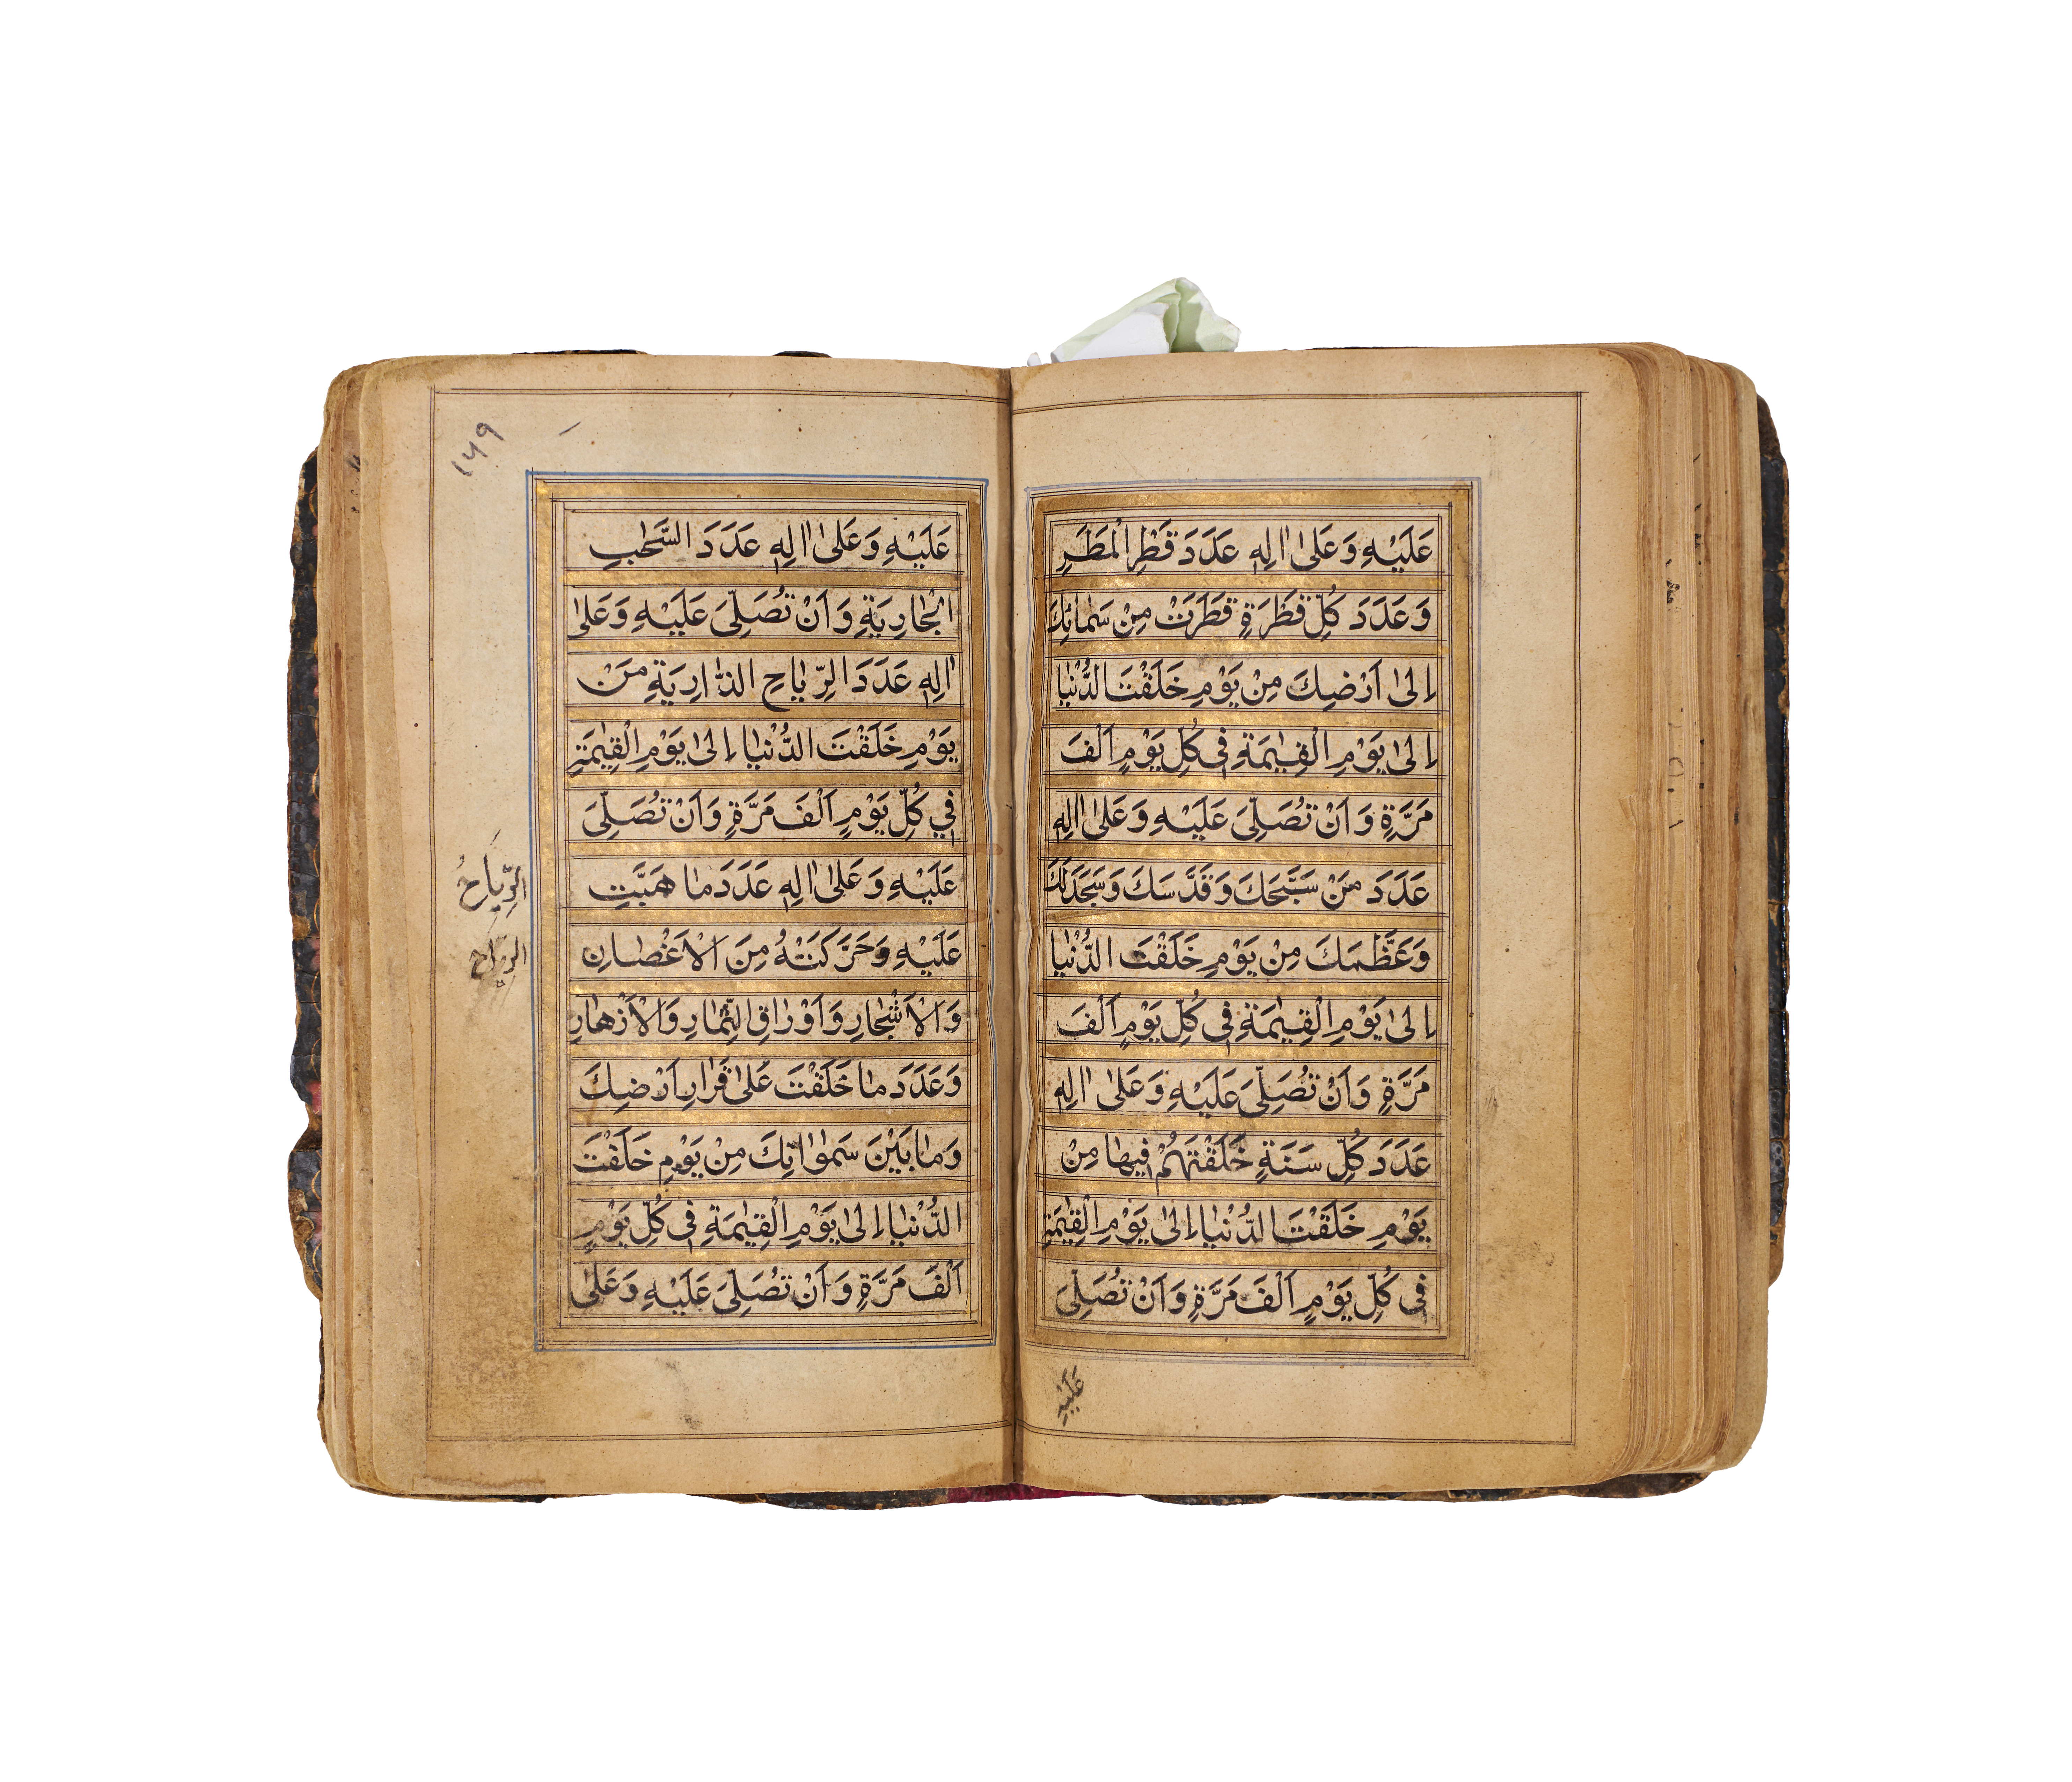 عَلَيْهِ وَعَلىٰ اٰلِهٖ عَدَدَ قَطْرِ الْمَطَرِ
وَعَدَدَ كُلِّ قَطْرَةٍ قَطَرَتْ مِنْ سَمٰائِكَ
اِلىٰ اَرْضِكَ مِنْ يَوْمِ خَلَقْتَ الدُّنْيٰا
اِلىٰ يَوْمِ الْقِيٰمَةِ فِي كُلِّ يَوْمٍ اَلْفَ
مَرَّةٍ وَاَنْ تُصَلِّىَ عَلَيْهِ وَعَلىٰ اٰلِهٖ
عَدَدَ مَنْ سَبَّحَكَ وَقَدَّسَكَ وَسَجَدَ لَكَ
وَعَظَّمَكَ مِنْ يَوْمِ خَلَقْتَ الدُّنْيٰا
اِلىٰ يَوْمِ الْقِيٰمَةِ فِي كُلِّ يَوْمٍ اَلْفَ
مَرَّةٍ وَاَنْ تُصَلِّىَ عَلَيْهِ وَعَلىٰ اٰلِهٖ
عَدَدَ كُلِّ سَنَةٍ خَلَقْتَهُمْ فِيهٰا مِنْ
يَوْمِ خَلَقْتَ الدُّنْيٰا اِلىٰ يَوْمِ الْقِيٰمَةِ
فِي كُلِّ يَوْمٍ اَلْفَ مَرَّةٍ وَاَنْ تُصَلِّىَ
عَلَيْهِ
١٧٩
عَلَيْهِ وَعَلىٰ اٰلِهٖ عَدَدَ السَّحٰبِ
الْجٰارِيَةِ وَاَنْ تُصَلِّىَ عَلَيْهِ وَعَلىٰ
اٰلِهٖ عَدَدَ الرِّيٰاحِ الذّٰارِيَةِ مِنْ
يَوْمِ خَلَقْتَ الدُّنْيٰا اِلىٰ يَوْمِ الْقِيٰمَةِ
فِي كُلِّ يَوْمٍ اَلْفَ مَرَّةٍ وَاَنْ تُصَلِّىَ
عَلَيْهِ وَعَلىٰ اٰلِهٖ عَدَدَ مٰا هَبَّتِ
الرِّيَاحُ
عَلَيْهِ وَحَرَّكَتْهُ مِنَ الْاَغْصٰانِ
الرياح
وَالْاَشْجٰارِ وَاَوْرٰاقِ الثِّمٰارِ وَالْاَزْهٰارِ
وَعَدَدَ مٰا خَلَقْتَ عَلىٰ قَرٰارِ اَرْضِكَ
وَمٰا بَيْنَ سَمٰوٰاتِكَ مِنْ يَوْمِ خَلَقْتَ
الدُّنْيٰا اِلىٰ يَوْمِ الْقِيٰمَةِ فِي كُلِّ يَوْمٍ
اَلْفَ مَرَّةٍ وَاَنْ تُصَلِّىَ عَلَيْهِ وَعَلىٰ